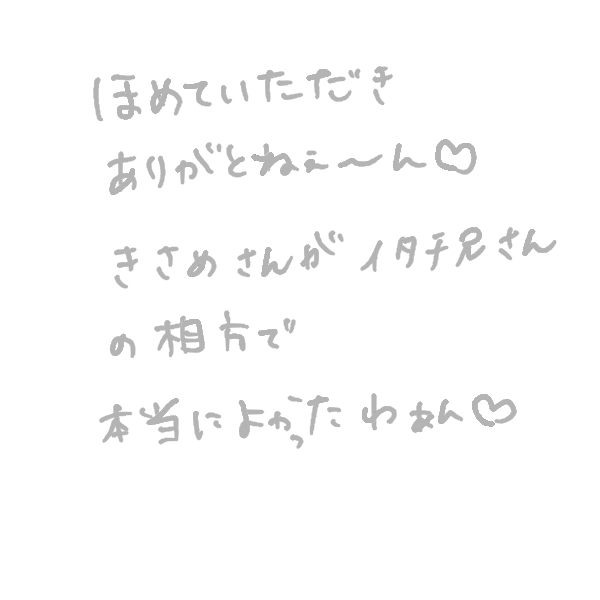 ほめていただき
ありがとねぇ〜ん♡
きさめさんがイタチ兄さん
の相方で
本当によかったわぁん♡